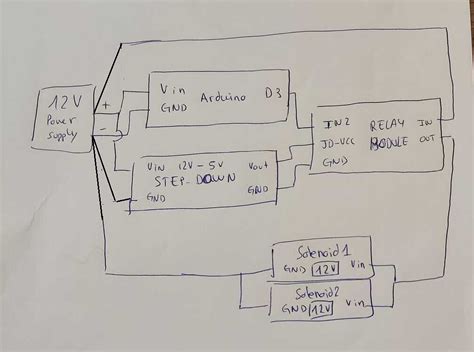 12V
Power
supply
+
-
Vin
GND
Arduino
D3
Vin 12V-5V Vout
STEP-DOWN
GND
GND
IN2 RELAY IN
JD-VCC MODULE OUT
GND
Solenoid1
GND 12V Vin
Solenoid2
GND 12V Vin